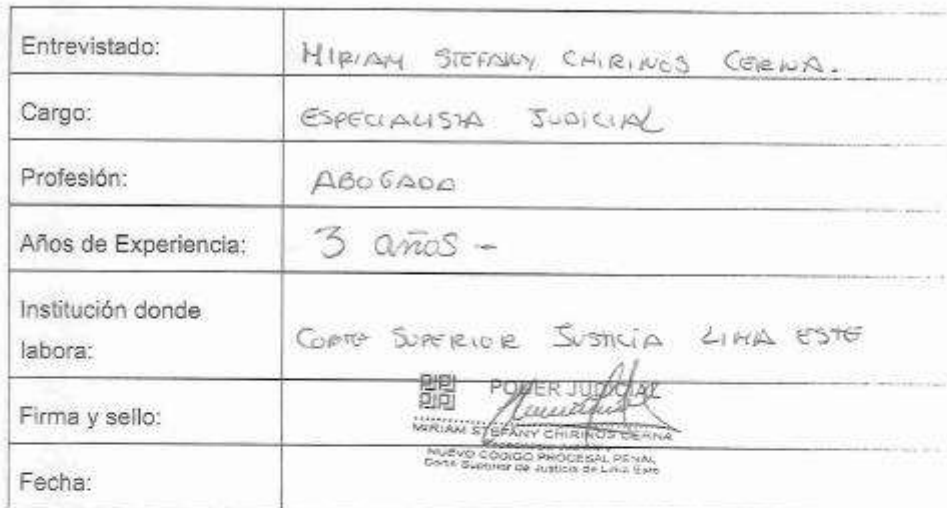 Entrevistado: MIRIAM STEFANY CHIRINOS CERNA.
Cargo: ESPECIALISTA JUDICIAL
Profesión: ABOGADA
Años de Experiencia: 3 años -
Institución donde
labora: CORTE SUPERIOR JUSTICIA LIMA ESTE
Firma y sello: PODER JUDICIAL
MIRIAM STEFANY CHIRINOS CERNA
NUEVO CÓDIGO PROCESAL PENAL
Corte Superior de Justicia de Lima Este
Fecha: